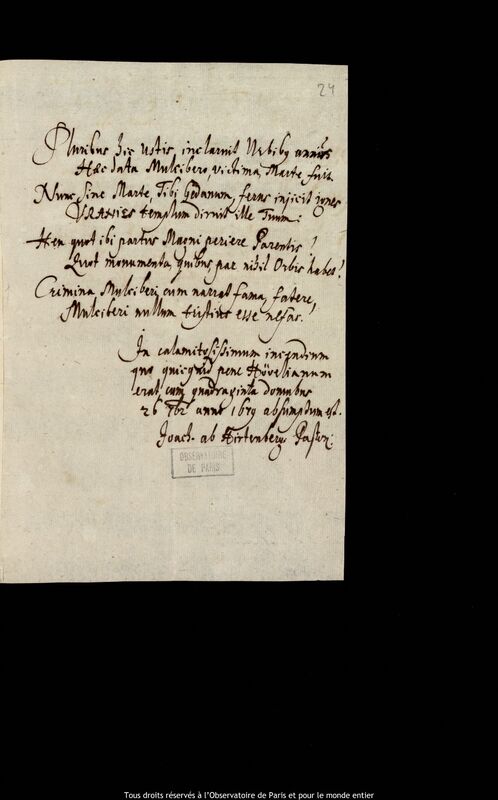 24
Pluribus hic ustis, inclaruit Urbibus annus
Hæc data Mulcibero, victima, Marte fuit.
Nunc, Sine Marte, Tibi Gedanum, ferus injicit ignes
URANIES templum diruit ille Tuum:
Heu quot ibi partus Magni periere Parentis!
Quot monumenta, quibus par nihil Orbis habet!
Crimina Mulciberi, cum narrat fama, fatere,
Mulciberi nullum tristius esse nefas.
In calamitosissimum incendium
quo quicquid pene Hövelianum
erat, cum quadraginta domibus
26 7br anno 1679 absumptum est.
Joach. ab Hirtenberg Pastor:
OBSERVATOIRE
DE PARIS
Tous droits réservés à l'Observatoire de Paris et pour le monde entier